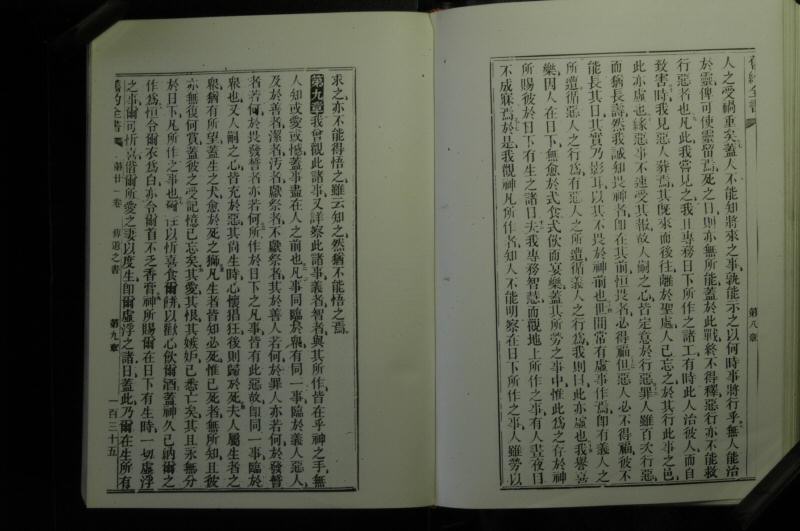 舊約全書
第八章
人之受禍重矣蓋人不能知將來之事孰能示之以何時事將行乎無人能治
於靈俾可使靈留焉死之日則亦無所能蓋於此戰終不得釋惡行亦不能救
行惡者也凡此我嘗見之我且專務日下所作之諸工有時此人治彼人而自
致害時我見惡人葬焉其既來而後往離於聖處人已忘之於其行此事之邑
此亦虛也緣惡事不速受其報故人嗣之心皆定意於行惡罪人雖百次行惡
而猶長壽然我誠知畏神者即在其前恒畏者必得福但惡人必不得福彼不
能長其日其實乃影耳以其不畏於神前也世間常有虛事作焉即有義人之
所遭循惡人之行為有惡人之所遭循義人之行為我則曰此亦虛也我譽喜
樂因人在日下無愈於式食式飲而宴樂蓋其所勞之事中惟此為之存於神
所賜彼於日下有生之諸日夫我專務智慧而觀地上所作之事有人晝夜目
不成寐焉於是我觀神凡所作者知人不能明察在日下所作之事人雖勞以
求之亦不能得悟之雖云知之然猶不能悟之焉
第九章我曾觀此諸事又詳察此諸事義者智者與其所作皆在乎神之手無
人知或愛或憾蓋事盡在人之前也凡事同臨於眾有同一事臨於義人惡人
及於善者潔者污者獻祭者不獻祭者其於善人若何於罪人亦若何於發誓
者若何於畏發誓者亦若何所作於日下之凡事皆有此惡故即同一事臨於
眾也又人嗣之心皆充於惡其尚生時心懷猖狂後則歸於死夫人屬生者之
眾猶有所望蓋生之犬愈於死之獅凡生者皆知必死惟已死者無所知且彼
亦無復何賞蓋彼之受記憶已忘矣其愛其恨其嫉妒已悉亡矣其且永無分
於日下凡所作之事也爾往以忻喜食爾餅以歡心飲爾酒蓋神久已納爾之
作為恒令爾衣為白亦令爾首不乏香膏神所賜爾在日下有生時一切虛浮
之事爾可忻喜偕爾所愛之妻以度生即爾虛浮之諸日蓋此乃爾在生所有
舊約全書
第廿一卷
傳道之書
第九章
一百三十五